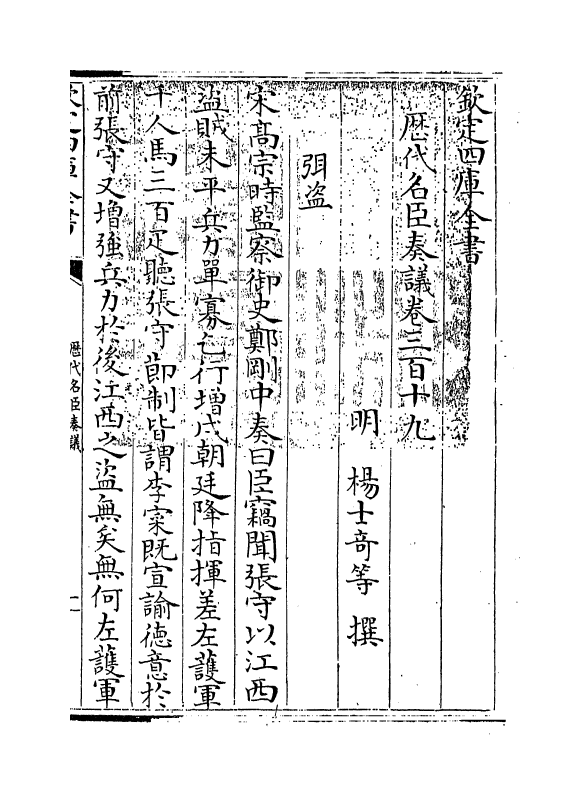 欽定四庫全書
歴代名臣奏議卷三百十九
明 楊士竒等 撰
弭盗
宋髙宗時監察御史鄭剛中奏曰臣竊聞張守以江西
盗賊未平兵力單寡乞行增戍朝廷降指揮差左䕶軍
千人馬三百疋聽張守節制皆謂李寀既宣諭徳意於
前張守又增強兵力於後江西之盗無矣無何左䕶軍
歴代名臣奏議
一